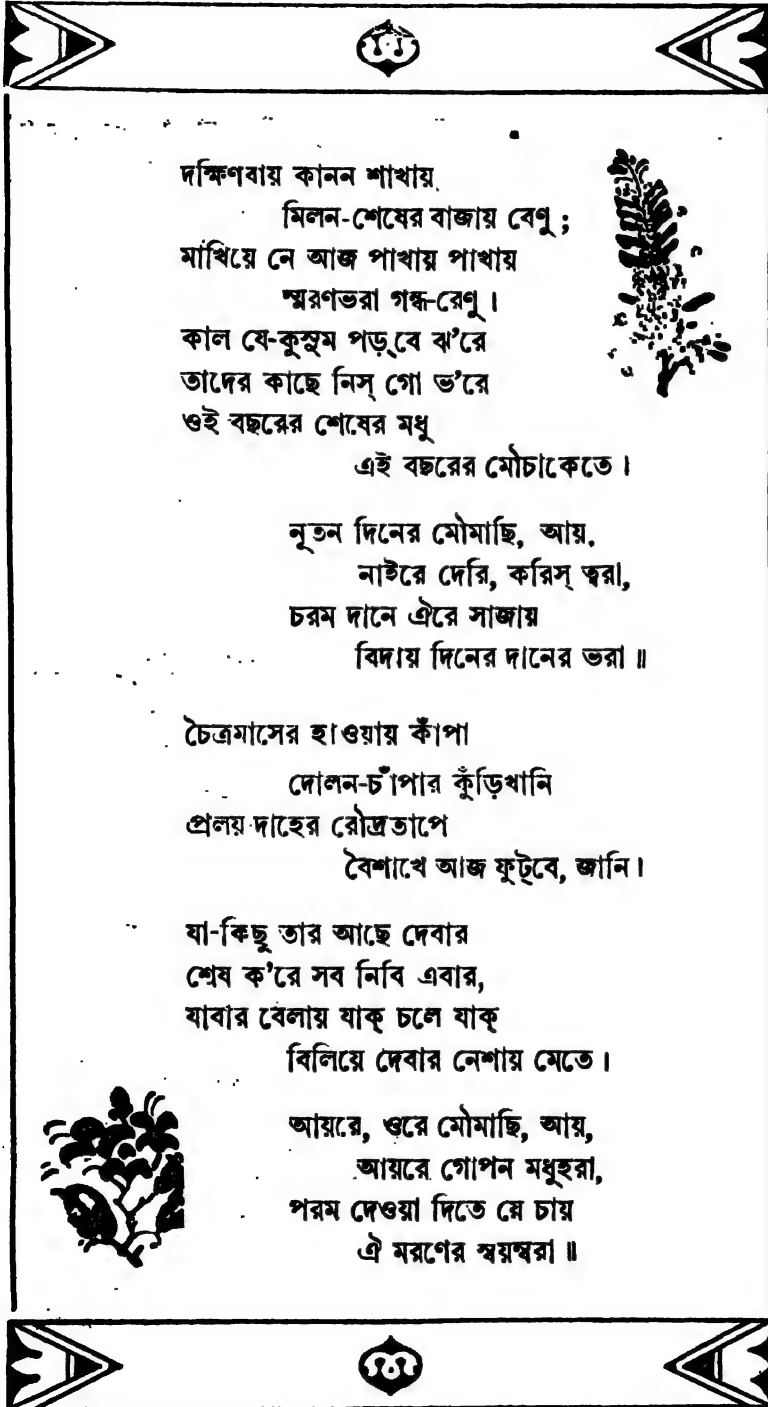 দক্ষিণবায় কানন শাখায়
মিলন-শেষের বাজায় বেণু ;
মাখিয়ে নে আজ পাখায় পাখায়
স্মরণভরা গন্ধ-রেণু ।
কাল যে-কুসুম পড়্‌বে ঝ'রে
তাদের কাছে নিস্ গো ভ'রে
ওই বছরের শেষের মধু
এই বছরের মৌচাকেতে ।
নূতন দিনের মৌমাছি, আয়,
নাইরে দেরি, করিস্ ত্বরা,
চরম দানে ঐরে সাজায়
বিদায় দিনের দানের ভরা ॥
চৈত্রমাসের হাওয়ায় কাঁপা
দোলন-চাঁপার কুঁড়িখানি
প্রলয় দাহের রৌদ্রতাপে
বৈশাখে আজ ফুট্‌বে, জানি ।
যা-কিছু তার আছে দেবার
শেষ ক'রে সব নিবি এবার,
যাবার বেলায় যাক্ চলে যাক্
বিলিয়ে দেবার নেশায় মেতে ।
আয়রে, ওরে মৌমাছি, আয়,
আয়রে গোপন মধুহরা,
পরম দেওয়া দিতে যে চায়
ঐ মরণের স্বয়ম্বরা ॥